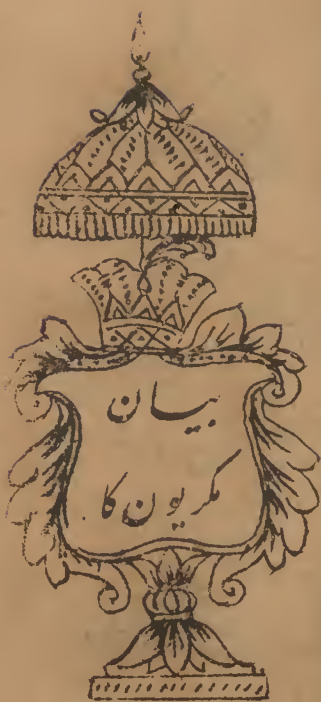 بیان
مکریون کا